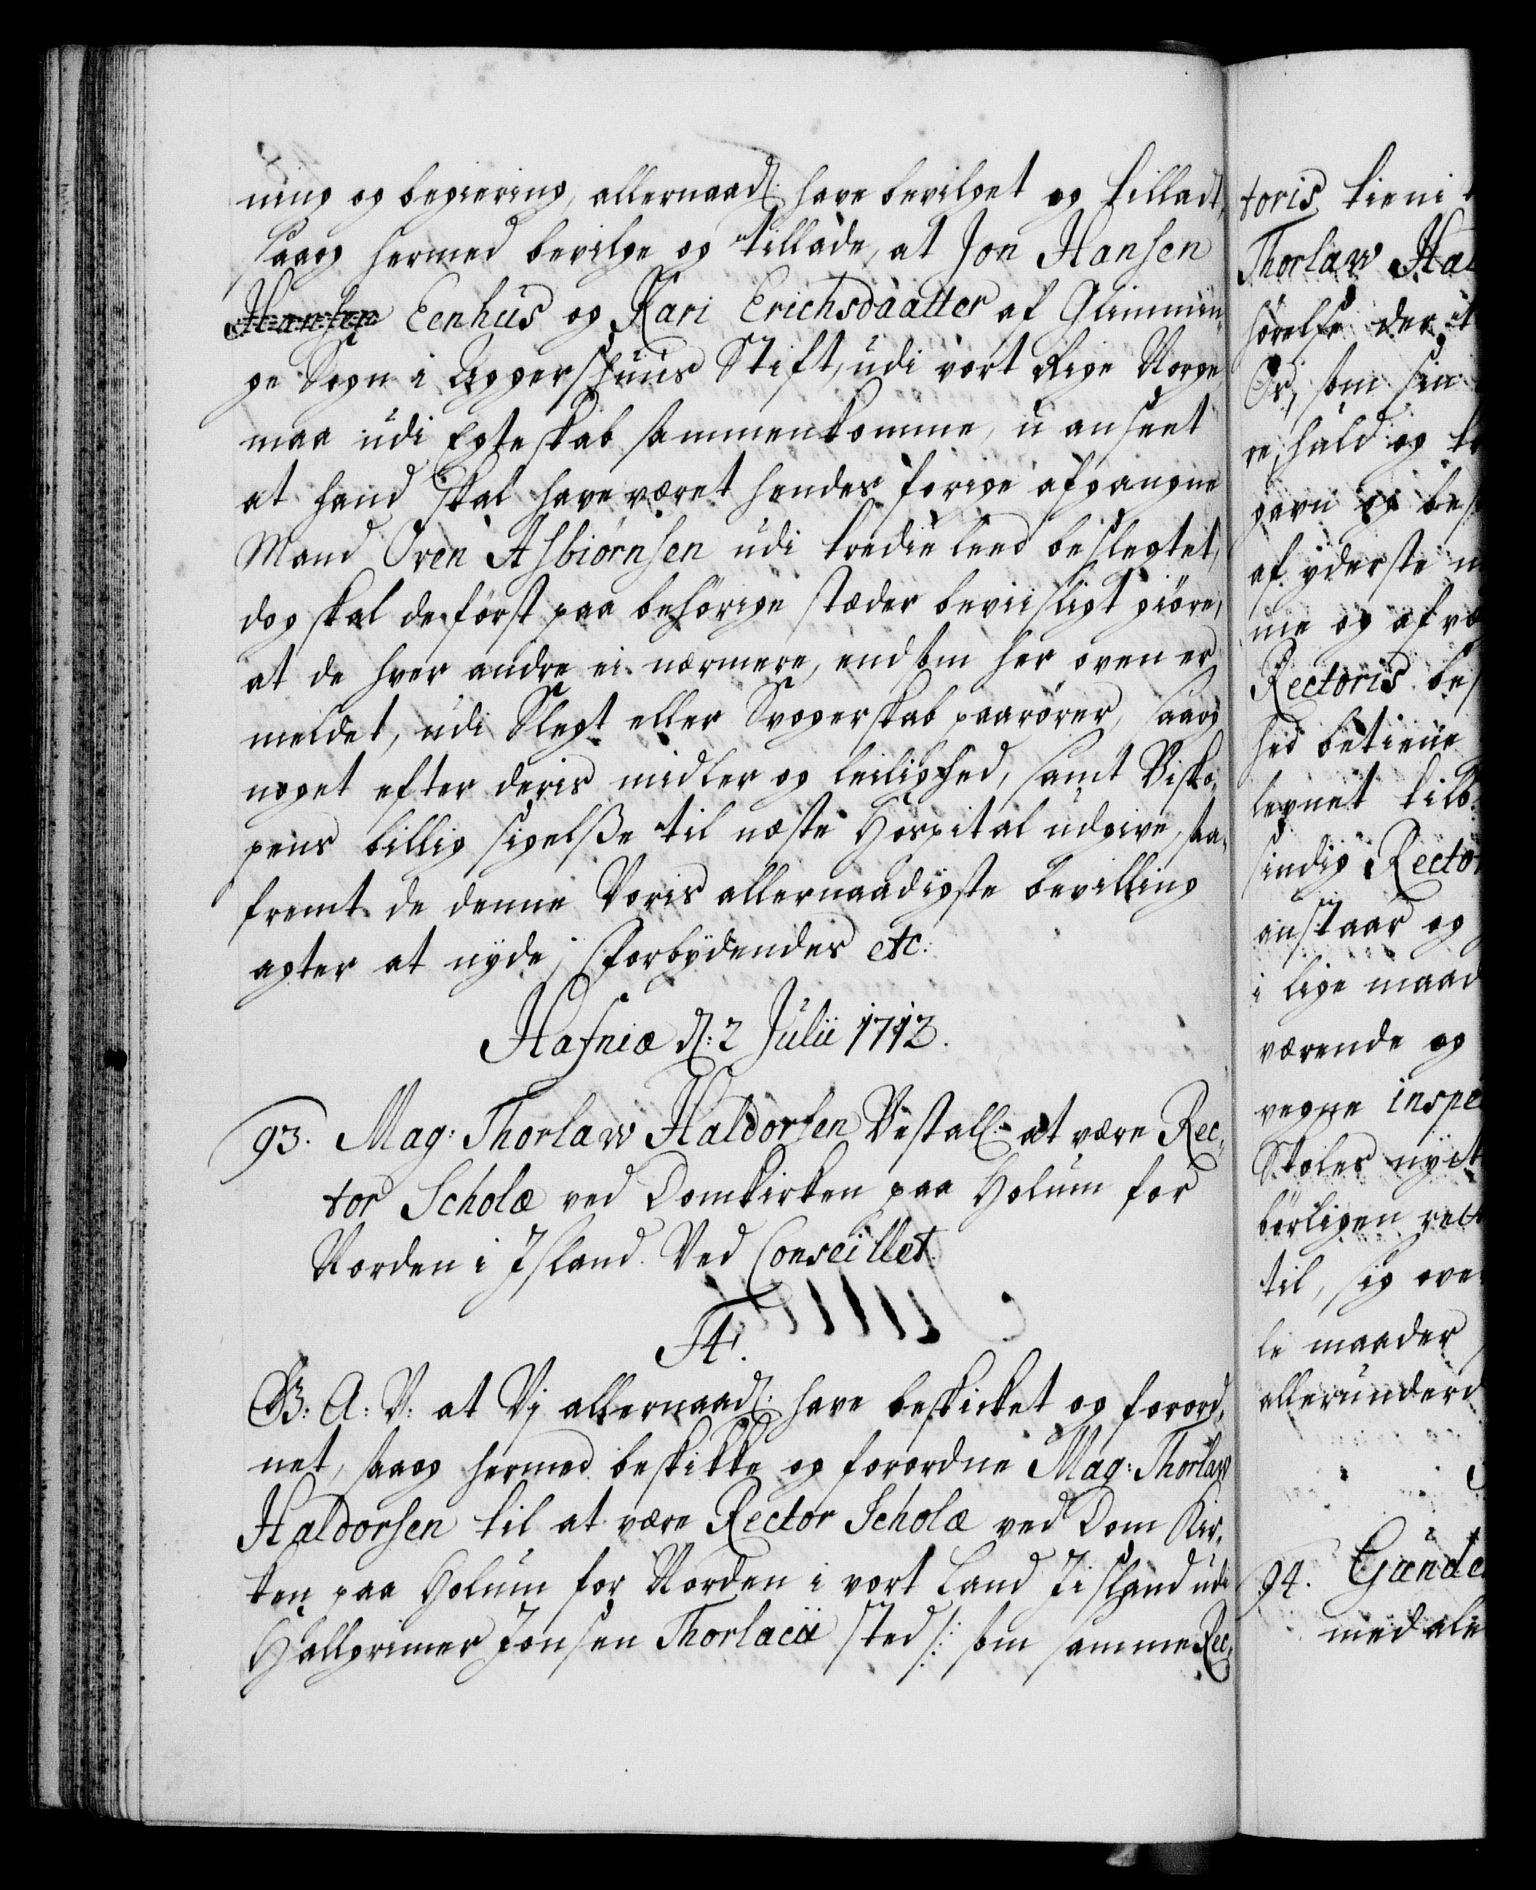 ning og begiering, allernaadl: have bevilget og tilladt,
saaog hermed bevilge og tillade, at Jon Hansen
Hansen Eenhus og Kari Erichsdaatter af Glimmin-
ge Sogn i Aggershuus Stift, udi vort Rige Norge
maa udi Egteskab sammenkomme, u anseet
at hand skal have været hendes forige afgangne
Mand Oven Asbiørnsen udi tredie leed beslegtet,
dog skal de først paa behørige stæder beviisligt giøre,
at de hver andre ei nærmere, end som her oven er
meldet, udi Slegt eller Svogerskab paarører, saaog
noget efter deris midler og leilighed, samt Bisko-
pens billig sigelße til næste Hospital udgive, saa-
fremt de denne Voris allernaadigste bevilling
agter at nyde, Forbydendes etc:
Hafniæ d: 2 Julii 1713.
93. Mag: Thorlaw Haldorsen Bestall: at være Rec-
tor Scholæ ved Domkirken paa Holum for
Norden i Island. Ved Conseillet.
F4.
G: A: V: at Vj allernaadl: have beskicket og forord-
net, saaog hermed beskikke og forordne Mag: Thorlaw
Haldorsen til at være Rector Scholæ ved Dom Kir-
ken paa Holum for Norden i vort Land Iisland udi
Hallgrimer Jonsen Thorlacii sted /: som samme Rec-
toris tieni
Thorlaw Hal
hørelse der
som sin
re, huld og
gavn og bes
af yderste
me og af
Rectoris bes
hed betiene
legnet
sindig Rector
anstaar og
i lige maad
værende og
vegne inspe
Skoles
børligen
til, sig ove
le maader
allerunderd
94. Gunde
med